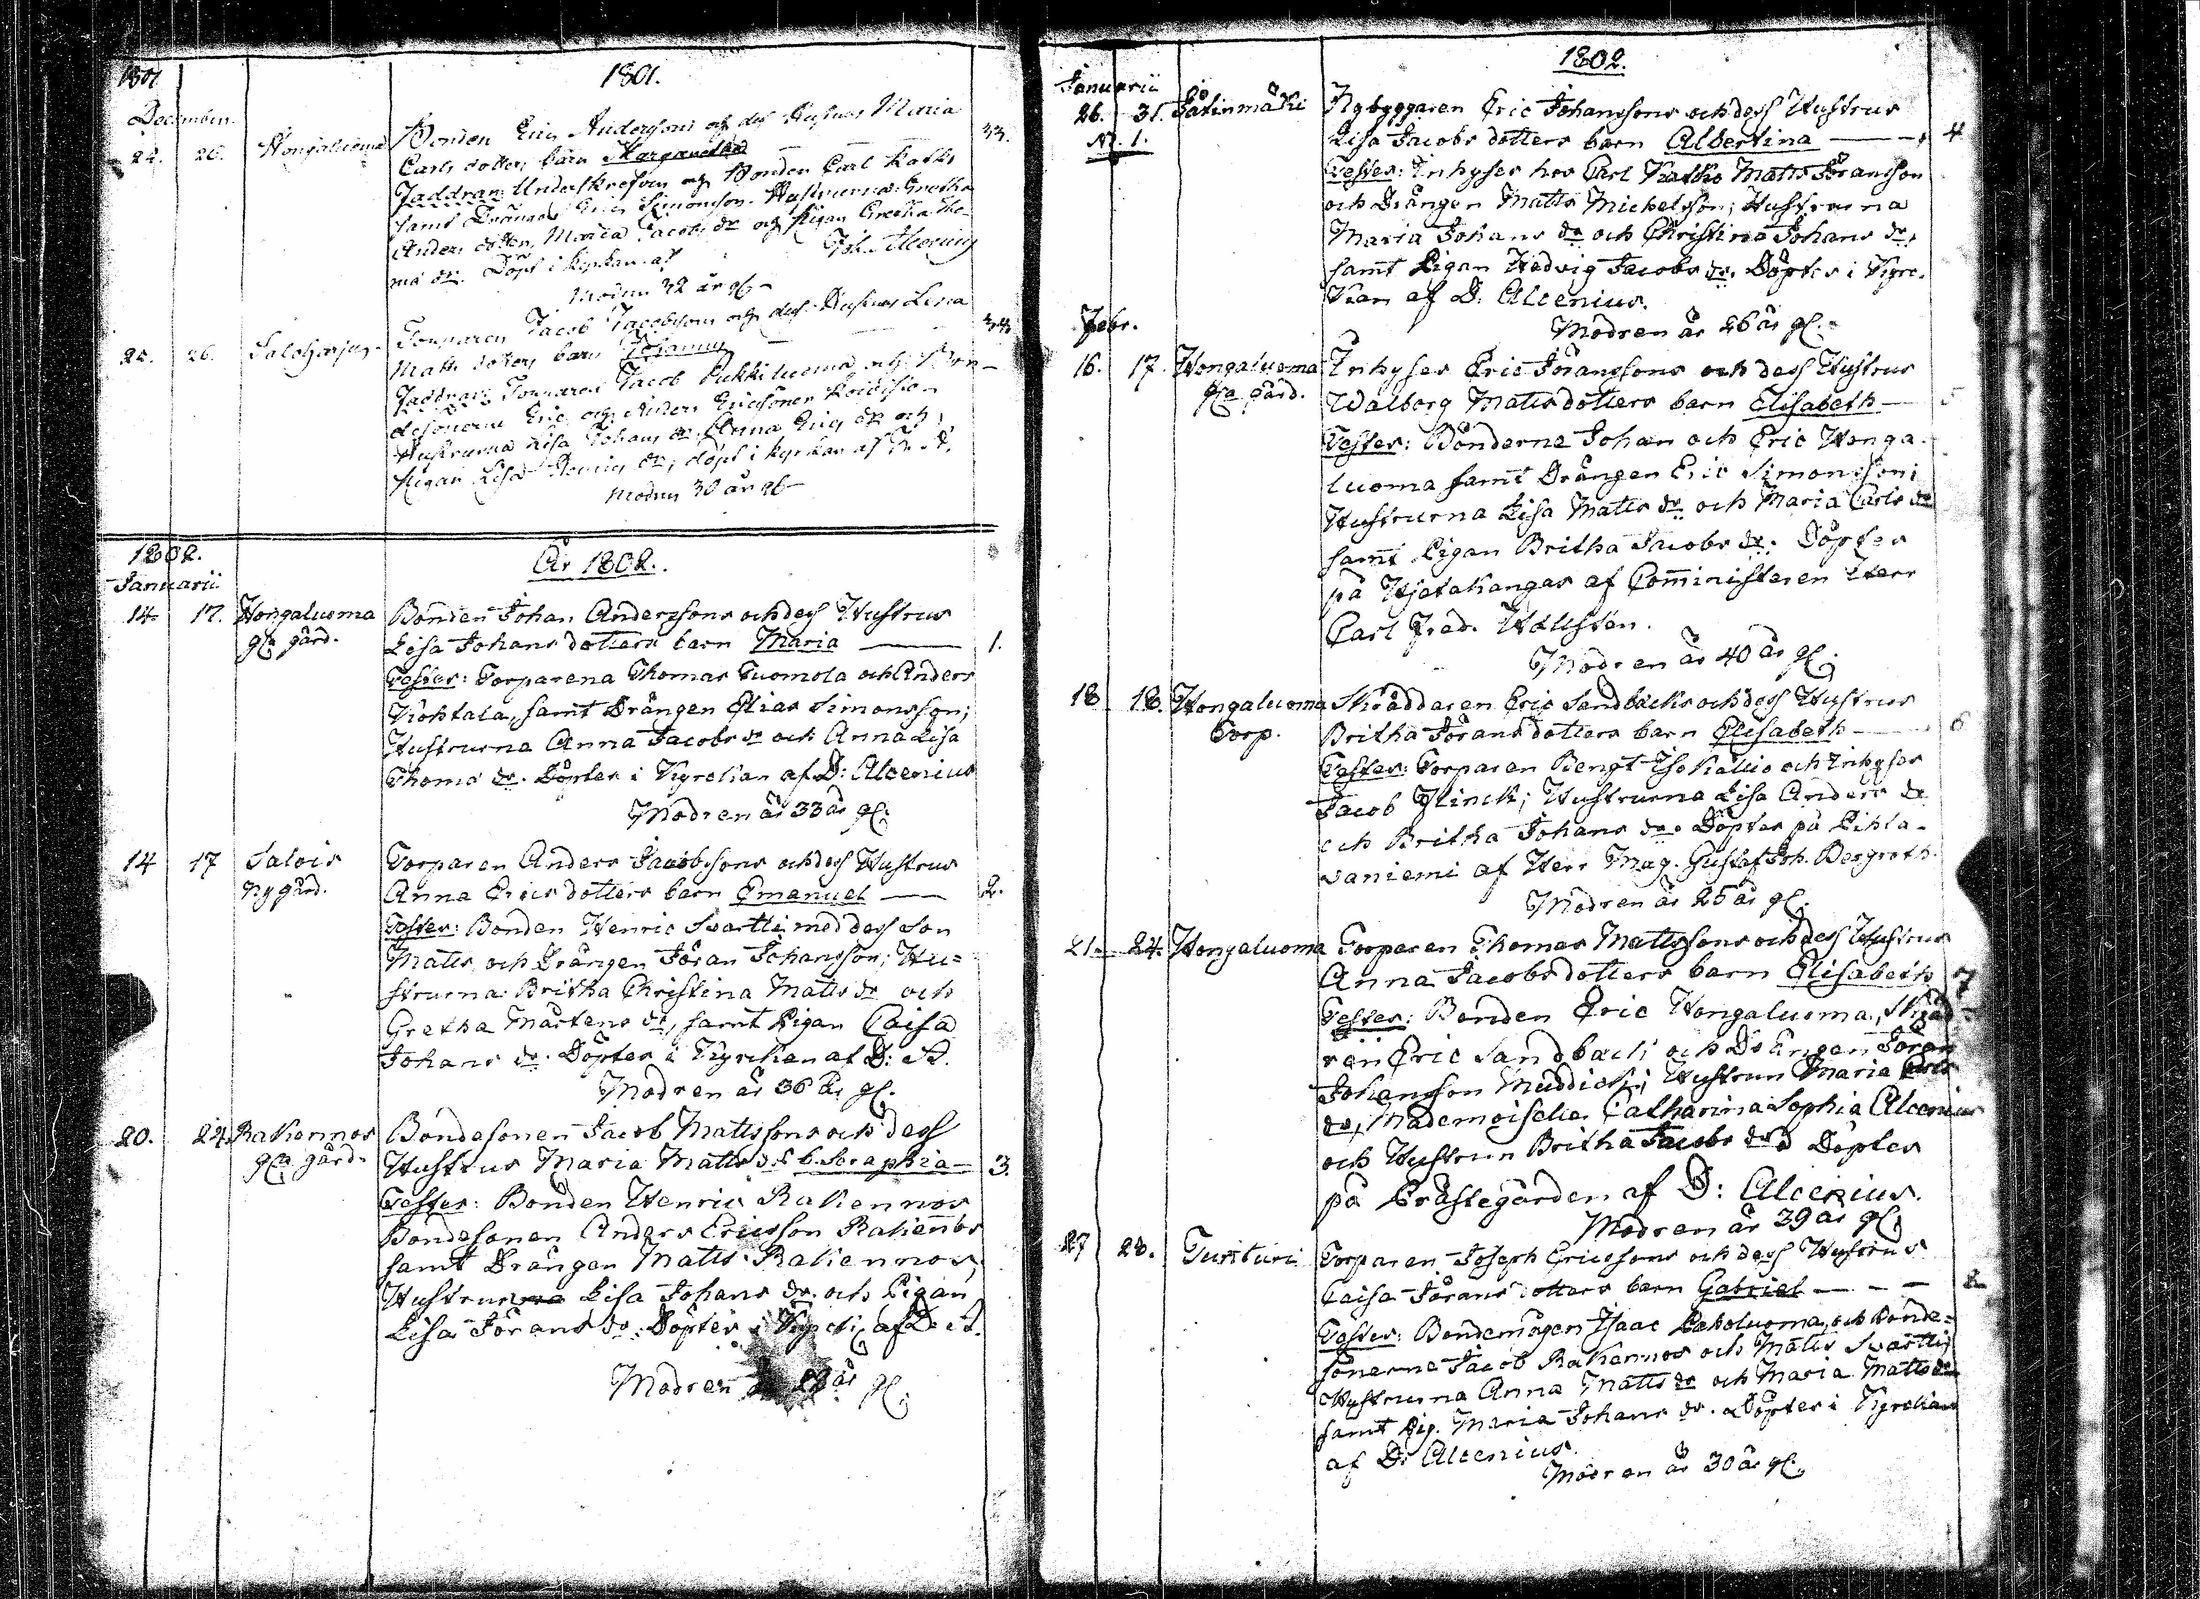 1801
1801.
December.
24. 26. Hongaluoma Bonden Eric Andersons och des Hustrus Maria
Carls dotters barn Margaretha — 33.
Faddrar: Underskrefven och Bonden Carl Katko
samt Drängen Eric Simonsson. Hustrurna: Gretha
Anders dotter, Maria Jacobs dr och Pigan Gretha Tho-
mæ dr. Döpt i kyrkan af Joh. Alcenius
Modren 32 år gl
25. 26. Saloharju Torparen Jacob Jacobsons och des Hustrus Lena
Matts dotters barn Johannes — 34
Faddrar: Torparen Jacob Pukkiluoma och Bon-
desönerne Eric och Anders Ericsöner
Hustrurna Lisa Johans dr Anna Erics dr och
Pigan Lisa dr; döpt i kyrkan af
Modren 30 år gl
1802.
År 1802.
Januarii
14. 17. Hongaluoma Bonden Johan Anderssons och dess Hustrus
gla gård. Lisa Johans dotters barn Maria — 1.
Testes: Torparena Thomas Tuomola och Anders
Kohtala, samt Drängen Elias Simonsson;
Hustrurna Anna Jacobs dr och Anna Lisa
Thomæ dr. Döptes i Kyrckan af D: Alcenius
Modren är 33 år gl.
14 17 Salois Torparen Anders Jacobssons och dess Hustrus
ny gård. Anna Erics dotters barn Emanuel — 2.
Testes: Bonden Henric Svartti med dess son
Matts och Drängen Jöran Johansson; Hu-
strurna: Britha Christina Matts dr och
Gretha Mårtens dr, samt Pigan Caisa
Johans dr. Döptes i Kyrckan af D: A.
Modren är 36 år gl.
20. 24. Rakennos Bondesonen Jacob Mattssons och dess
gla gård. Hustrus Maria Matts dr b. Seraphia — 3.
Testes: Bonden Henric Rakennos
Bondesonen Anders Ericsson Rakennos
samt Drängen Matts Rakennos,
Hustrun Lisa Johans dr. och Pigan
Lisa Jörans dr. Döptes i Kyrck. af D: A.
Modren år gl.
1802.
Januarii
26. 31. Jätinmäki Nybyggaren Eric Johanssons och dess Hustrus
N. 1. Lisa Jacobs dotters barn Albertina — 4
Testes: Inhyses hos Carl Katko Matts Göransson
och Drängen Matts Mickelsson; Hustrurna
Maria Johans dr och Christina Johans dr,
samt Pigan Hedvig Jacobs dr. Döptes i Kyrc-
kan af D: Alcenius.
Modren är 26 år gl.
Febr.
16. 17. Hongaluoma Inhyses Eric Jöranssons och dess Hustrus
gla gård. Walborg Mattsdotters barn Elisabeth — 5
Testes: Bönderne Johan och Eric Honga-
luoma samt Drängen Eric Simonsson;
Hustrurna Lisa Matts dr. och Maria Carls dr
samt Pigan Britha Jacobs dr. Döptes
på Hjetakangas af Comministeren Herr
Carl Fred. Wallsten.
Modren är 40 år gl.
18 18. Hongaluoma Skräddaren Eric Sandbäcks och dess Hustrus
Torp. Britha Jörans dotters barn Elisabeth — 6
Testes: Torparen Bengt Isokallio och Inhyses
Jacob Flinck; Hustrurna Lisa Anders dr
och Britha Johans dr. Döptes på Pihla-
vaniemi af Herr Mag. Gustaf Joh. Bergroth.
Modren är 25 år gl.
21. 24. Hongaluoma Torparen Thomas Mattssons och dess Hustrus
Anna Jacobs dotters barn Elisabeth 7
Testes: Bonden Eric Hongaluoma, Skräd-
ren Eric Sandback och Drängen Jöran
Johansson Muddick; Hustrun Maria Carls
dr, Mademoiselle Catharina Sophia Alcenius
och Hustrun Britha Jacobs dr. Döptes
på Prästegården af D: Alcenius.
Modren är 39 år gl.
27 28. Turituri Torparen Joseph Ericssons och dess Hustrus
Caisa Jörans dotters barn Gabriel — — —
Testes: Bondemågen Isaac och Bonde-
sönerne Jacob Rakennos och Matts Svartti;
Hustrurna Anna Matts dr och Maria Matts dr
samt Pig. Maria Johans dr. Döptes i Kyrckan
af D: Alcenius.
Modren är 30 år gl.